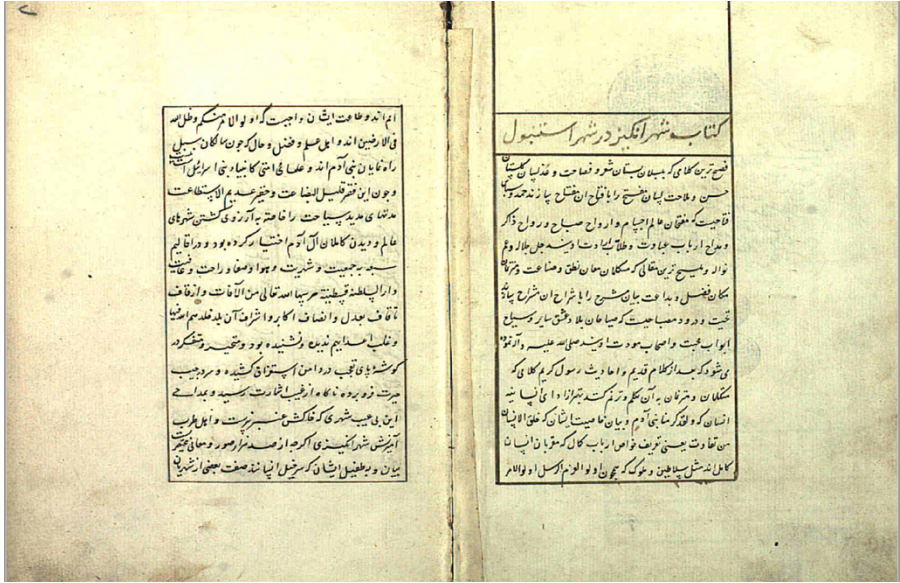 کتاب شهرانکیز در شهر استنبول
فصیح ترین کلامی که بلبلان بستان شعر و فصاحت و عندلیبان کلستان
حسن و ملاحت لسان فصیح را بافتاح ان مفتاح سازند حمد و سپاس
فاتحیست که مفتحان عالم اجسام و ارواح صباح و رواح ذاکر
و مداح ارباب عبادت و طلاب جل جلاله و عم
نواله و ملیح ترین مقالی که متکلمان معانی نطق و صناعت و مترنمان
مکان فضل و بداعت بیان مشرح را با شراح ان مشراح سازند
تحیت و درود مصباحیست که صباحان بلاد عشق سایر و سیاح
ابواب محبت و اصحاب مودت اویند صلی الله علیه و آله
می شود که بعد از کلام قدیم و احادیث رسول کریم کلامی که
متکلمان و مترنمان به آن تکلم و ترنم کنند
انسان که و لقد کرمنا بنی آدم و بیان خاصیت ایشان که خلق الانسان
من تفاوت یعنی تعریف خواص ارباب کمال که مقربان
کامل اند مثل سلاطین و ملوک که همچون اولوا العزم از رسل اولوا الامر
انم اند و طاعت ایشان واجبست که اولو الامر منکم و ظل الله
فی الارضین اند و اهل علم و فضل و حال که چون سالکان سبیل
راه نمایان بنی آدم اند و علماء امتی کانبیاء بنی اسرائیل
و چون این فقیر قلیل البضاعت و حقیر عدیم الاستطاعت
مدتهای مدید سیاحت را به آرزوی کشتن شهرهای
عالم و دیدن کاملان آل آدم اختیار کرده بود و در اقالیم
سبعه به جمعیت و شهریت و هوا و صفا و راحت و عافیت
دار السلطنة قسطنطنیه حرسها الله تعالی من الآفات و از قاف
تا قاف بعدل و انصاف اکابر و اشراف آن بلده
و غلب اعدایهم ندیده و نشنیده بود و متحیر و متفکر در
کوشه‌ای تعجب در دامن استغراق کشیده و سر در جیب
حیرت فرو برده ناکاه از غیب اشارت رسید و
این بی عیب شهری که خاکش عنبر سرشت و اهل طرب
آمیزش شهرانکیزی اکرچه از صد هزار صور و معانی
بیان و به طفیل ایشان که سرخیل صفت بعضی از شهریان